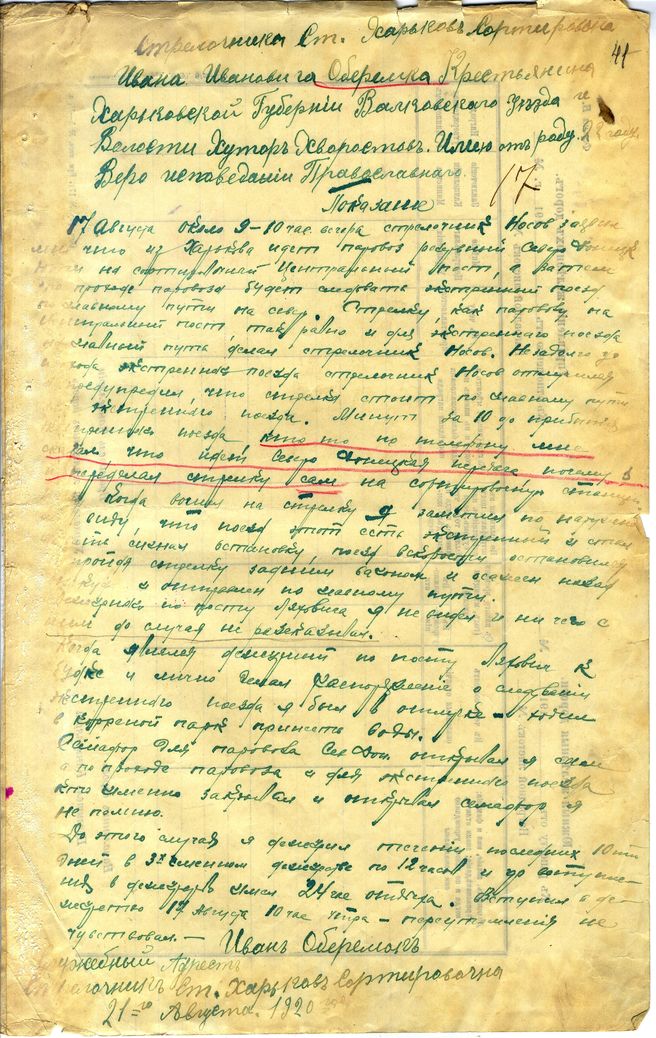 41
Стрелочника Ст. Харьковъ Сортировочна
Ивана Ивановича Оберемка Крестьянина
Харьковской Губернiи Валковского уезда
Волости Хуторъ Хворостовъ. Имею отъ роду 28 году
Веро исповедании Православнаго.
17
Показание
17 Августа около 9-10 час. вечера стрелочник Носов заявил
что из Харькова идет паровоз резервный Северо Донецк
на сортировочной Центральный пост, а затем
по проходе паровоза будет следовать экстренный поезд
по главному пути на север. Стрелку как паровозу на
пост так равно и для экстренного поезда
главный путь делал стрелочник Носов. Незадолго до
экстренного поезда стрелочник Носов
предупредил, что стрелка стоит по главному пути
экстренного поезда. Минут за 10 до прибытия
поезда, кто то по телефону мне
что идет Северо Донецкая передача посему я
переделал стрелку сам на сортировочную
Когда на стрелку я заметил по
виду, что поезд этот есть экстренный и стал
сигнал остановки, поезд вскорости остановился
пройдя стрелку задним вагоном и осажен назад
и отправлен по главному пути.
по посту Ляховича я не видел и ни чего с
ним до случая не разсказывал.
Когда дежурный по посту Ляхович к
будке и лично делал распоряжение о следовании
экстренного поезда я был в отлучке - ходил
в парк принесть воды.
Семафор для паровоза Сев Дон открывал я сам
а по проходе паровоза и для экстренного поезда
кто именно закрывал и открывал семафор я
не помню.
До этого случая я дежурил течении последних 10ти
дней в 3х сменном дежурстве по 12 часов и до вступле-
ния в дежурство имел 24 час отдыха. Вступил в де-
журство 17 Августа 10 час утра - переутомления не
чувствовал. -
Иванъ Оберемокъ
Служебный Адресъ
Стрелочникъ Ст. Харьковъ Сортировочна
21го Августа. 1920